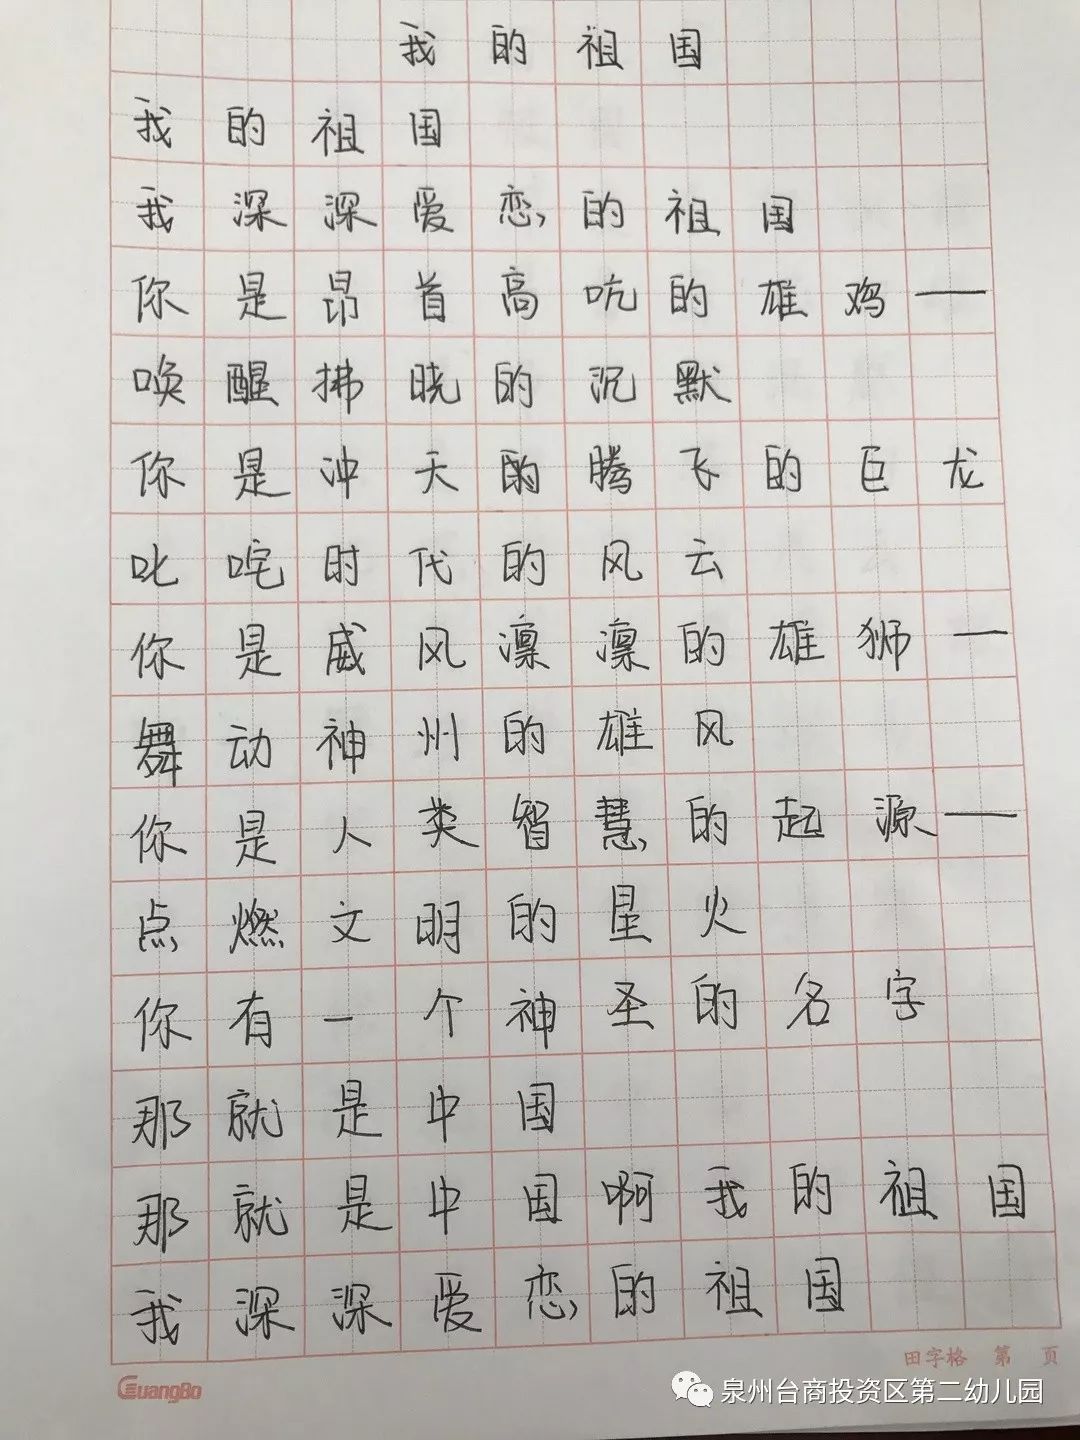 我的祖国
我的祖国
我深深爱恋的祖国
你是昂首高吭的雄鸡——
唤醒拂晓的沉默
你是冲天的腾飞的巨龙
叱咤时代的风云
你是威风凛凛的雄狮—
舞动神州的雄风
你是人类智慧的起源——
点燃文明的星火
你有一个神圣的名字
那就是中国
那就是中国啊我的祖国
我深深爱恋的祖国
田字格 第 页
GuangBo
泉州台商投资区第二幼儿园